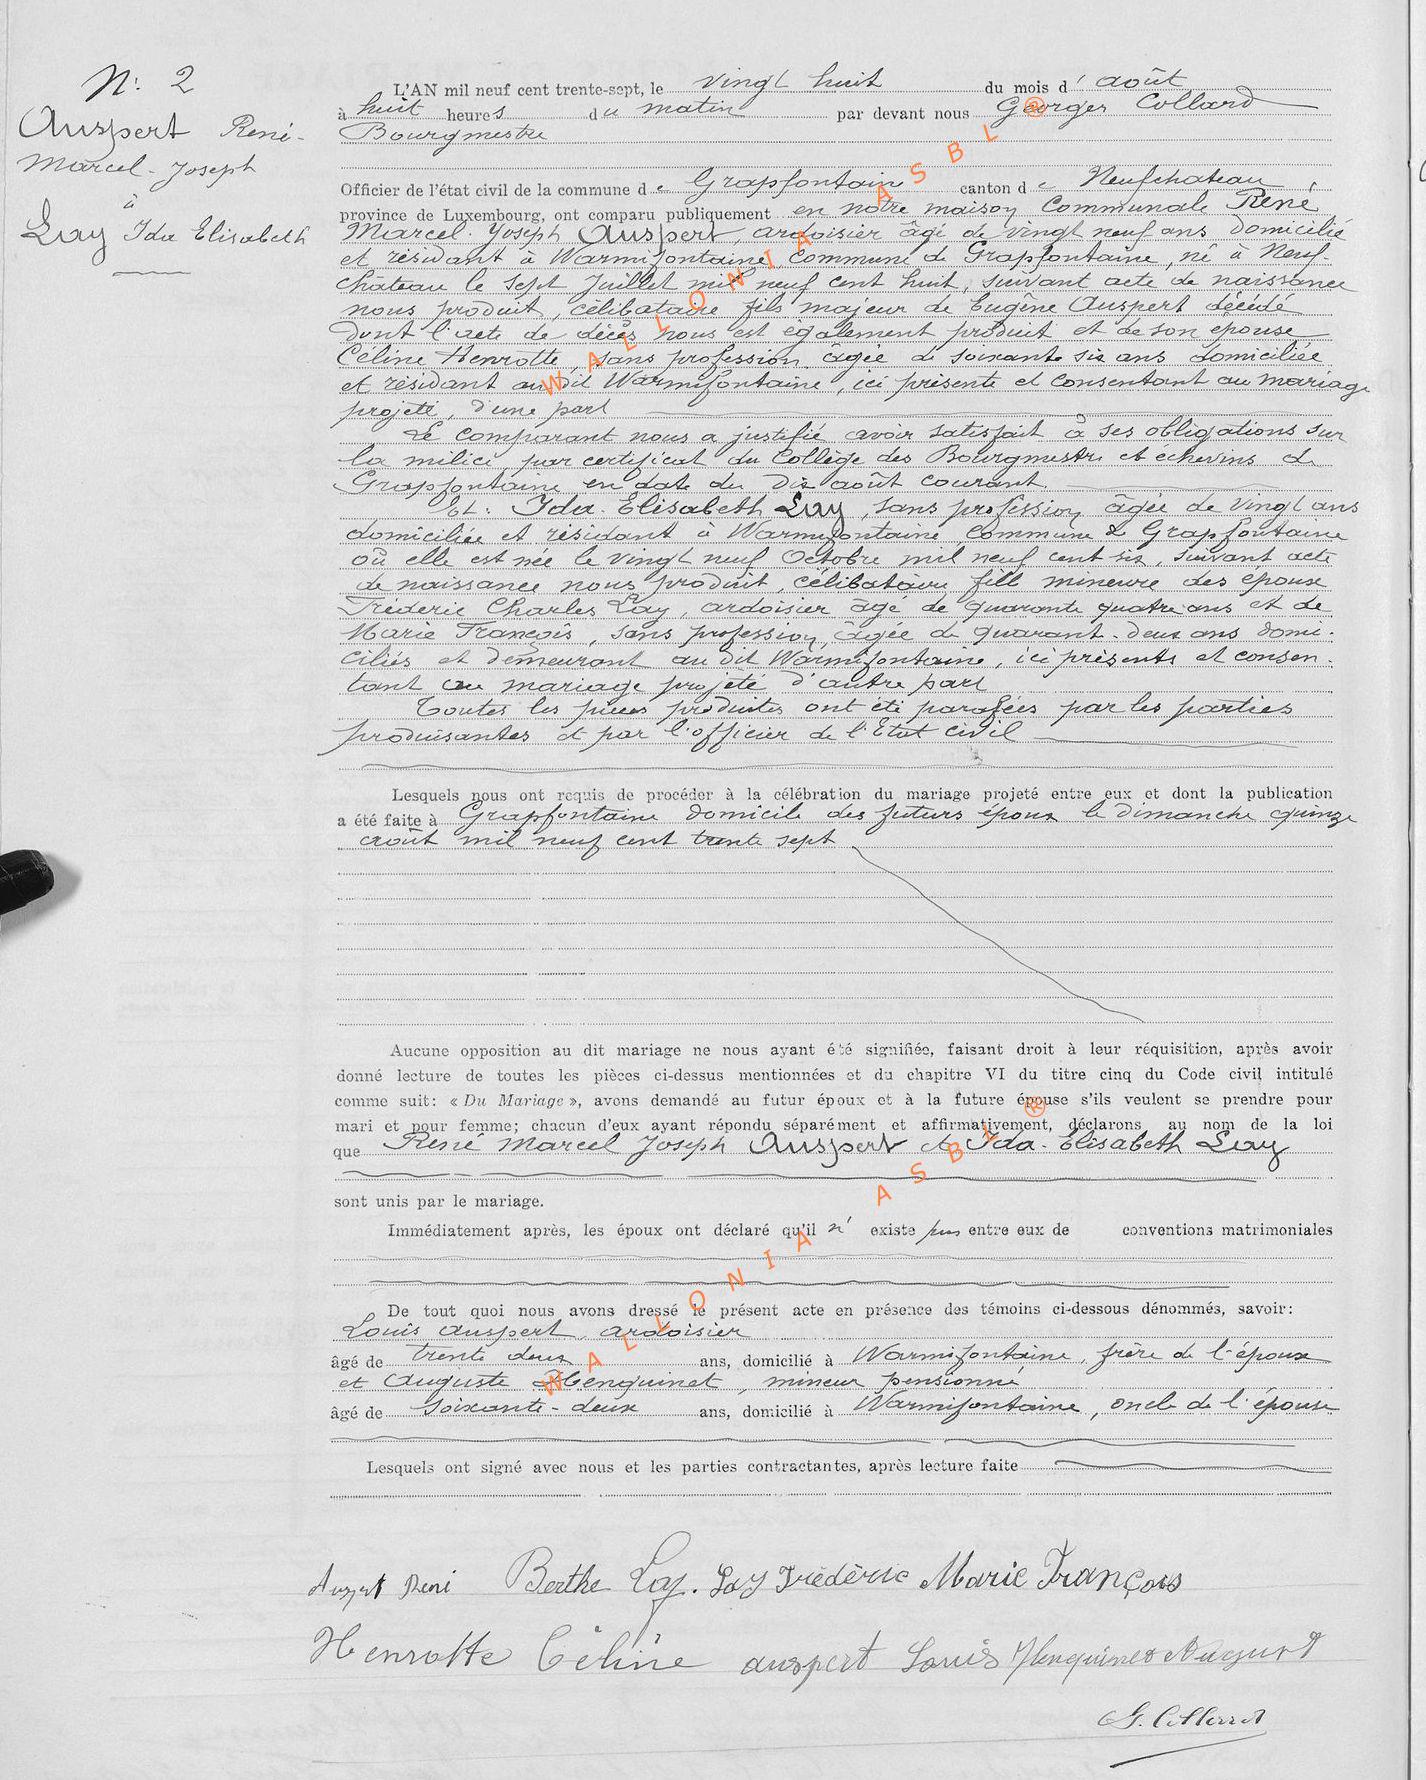 N: 2
Auspert René-
Marcel-Joseph
à
Lay Ida Elisabeth
L'AN mil neuf cent trente-sept, le vingt huit du mois d' août
à huit heures du matin par devant nous Georges Collard
Bourgmestre
Officier de l'état civil de la commune de Grapfontaine canton de Neufchateau
province de Luxembourg, ont comparu publiquement en notre maison Communale René
Marcel-Joseph Auspert, ardoisier âgé de vingt neuf ans domicilié
et résidant à Warmifontaine commune de Grapfontaine, né à Neuf-
château le sept Juillet mil neuf cent huit, suivant acte de naissance
nous produit, célibataire fils majeur de Eugène Auspert décédé
dont l'acte de décès nous est egalement produit et de son epouse
Céline Henrotte, sans profession, âgée de soixante six ans domiciliée
et résidant au dit Warmifontaine, ici présente et consentant au mariage
projeté, d'une part
Le comparant nous a justifié avoir satisfait à ses obligations sur
la milice par certificat du Collège des Bourgmestre et echevins de
Grapfontaine en date du dix août courant.
Et: Ida-Elisabeth Lay, sans profession âgée de vingt ans
domiciliée et résidant à Warmifontaine commune de Grapfontaine
où elle est née le vingt neuf Octobre mil neuf cent six, suivant acte
de naissance nous produit, célibataire fille mineure des époux
Fréderic Charles Lay, ardoisier âgé de quarante quatre ans et de
Marie François, sans profession, âgée de quarant-deux ans domi-
ciliés et demeurant au dit Warmifontaine, ici présents et consen-
tant au mariage projeté d'autre part
Toutes les pièces produites ont été parafées par les parties
produisantes et par l'officier de l'Etat civil
Lesquels nous ont requis de procéder à la célébration du mariage projeté entre eux et dont la publication
a été faite à Grapfontaine domicile des futurs époux le dimanche quinze
août mil neuf cent trente sept
Aucune opposition au dit mariage ne nous ayant été signifiée, faisant droit à leur réquisition, après avoir
donné lecture de toutes les pièces ci-dessus mentionnées et du chapitre VI du titre cinq du Code civil intitulé
comme suit: « Du Mariage », avons demandé au futur époux et à la future épouse s'ils veulent se prendre pour
mari et pour femme; chacun d'eux ayant répondu séparément et affirmativement, déclarons au nom de la loi
que René Marcel Joseph Auspert et Ida-Elisabeth Lay
sont unis par le mariage.
Immédiatement après, les époux ont déclaré qu'il n' existe pas entre eux de conventions matrimoniales
De tout quoi nous avons dressé le présent acte en présence des témoins ci-dessous dénommés, savoir:
Louis Auspert ardoisier
âgé de trente deux ans, domicilié à Warmifontaine, frère de l'époux
et Auguste Henquinet, mineur pensionné
âgé de soixante-deux ans, domicilié à Warmifontaine, oncle de l'épouse
Lesquels ont signé avec nous et les parties contractantes, après lecture faite
Auspert René Berthe Lay. Lay Frédéric Marie François
Henrotte Céline auspert Louis Henquinet August
G. Collard
WALLONIA ASBL ®
WALLONIA ASBL ®